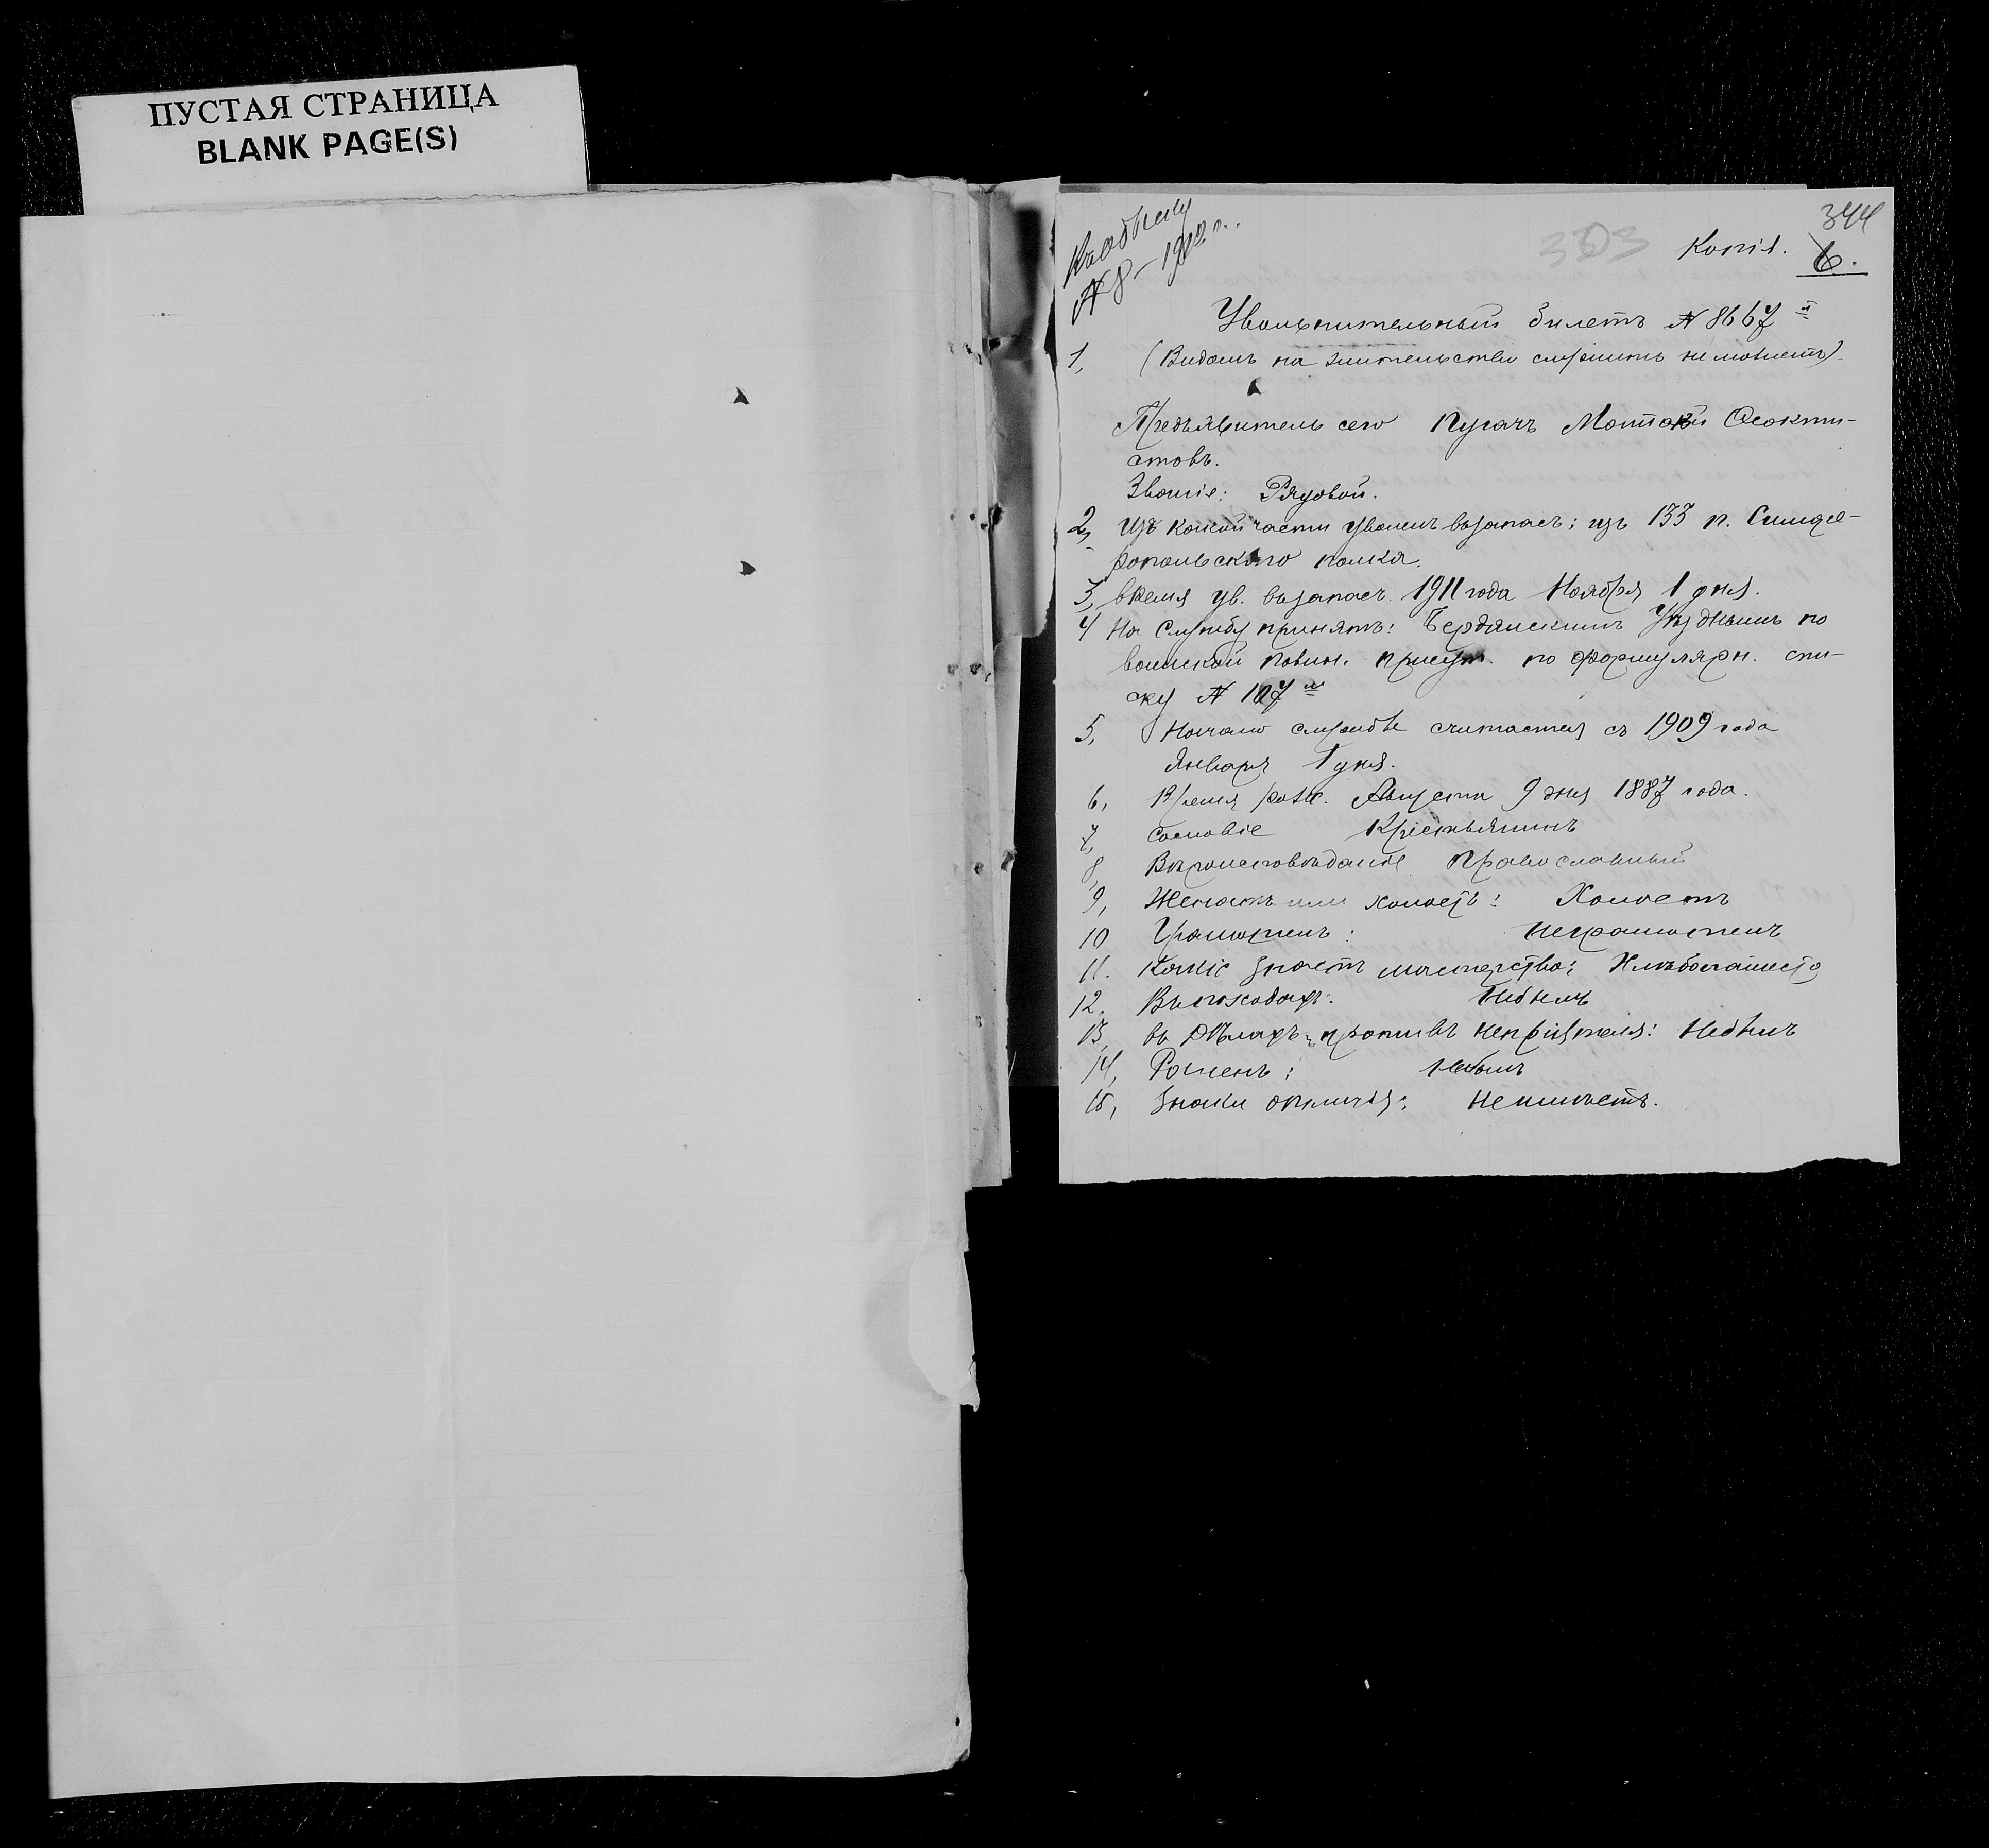 ПУСТАЯ СТРАНИЦА
BLANK PAGE(S)
344
303
Копія. 6.
№ 8 – 1912 г.
Увольнительный билетъ № 8667 й
1, (Видомъ на жительство служить не можетъ)
Предъявитель сего Пугачъ Феокти-
стовъ.
Званіе: Рядовой.
2, Изъ какой части уволенъ въ запасъ: изъ 133 п. Симфе-
ропольскаго полка.
3, время ув. въ запасъ 1911 года Ноября 1 дня.
4 На службу принятъ: Бердянскимъ Уѣзднымъ по
воинской повин. присут. по формулярн. спи-
ску № 107 м
5, Начало службѣ считается съ 1909 года
Января 1 дня.
6, Время рожд. Августа 9 дня 1887 года.
7, Сословіе Крестьянинъ
8, Вѣроисповѣданіе Православный
9, Женатъ или холостъ: Холостъ
10 Грамотенъ: Неграмотенъ
11. Какіе знаетъ мастерства: Хлѣбопашество
12. Въ походахъ: Небылъ
13, въ Дѣлахъ противъ непріятеля: Небылъ
14, Раненъ: Небылъ
15, Знаки отличія: Неимѣетъ.